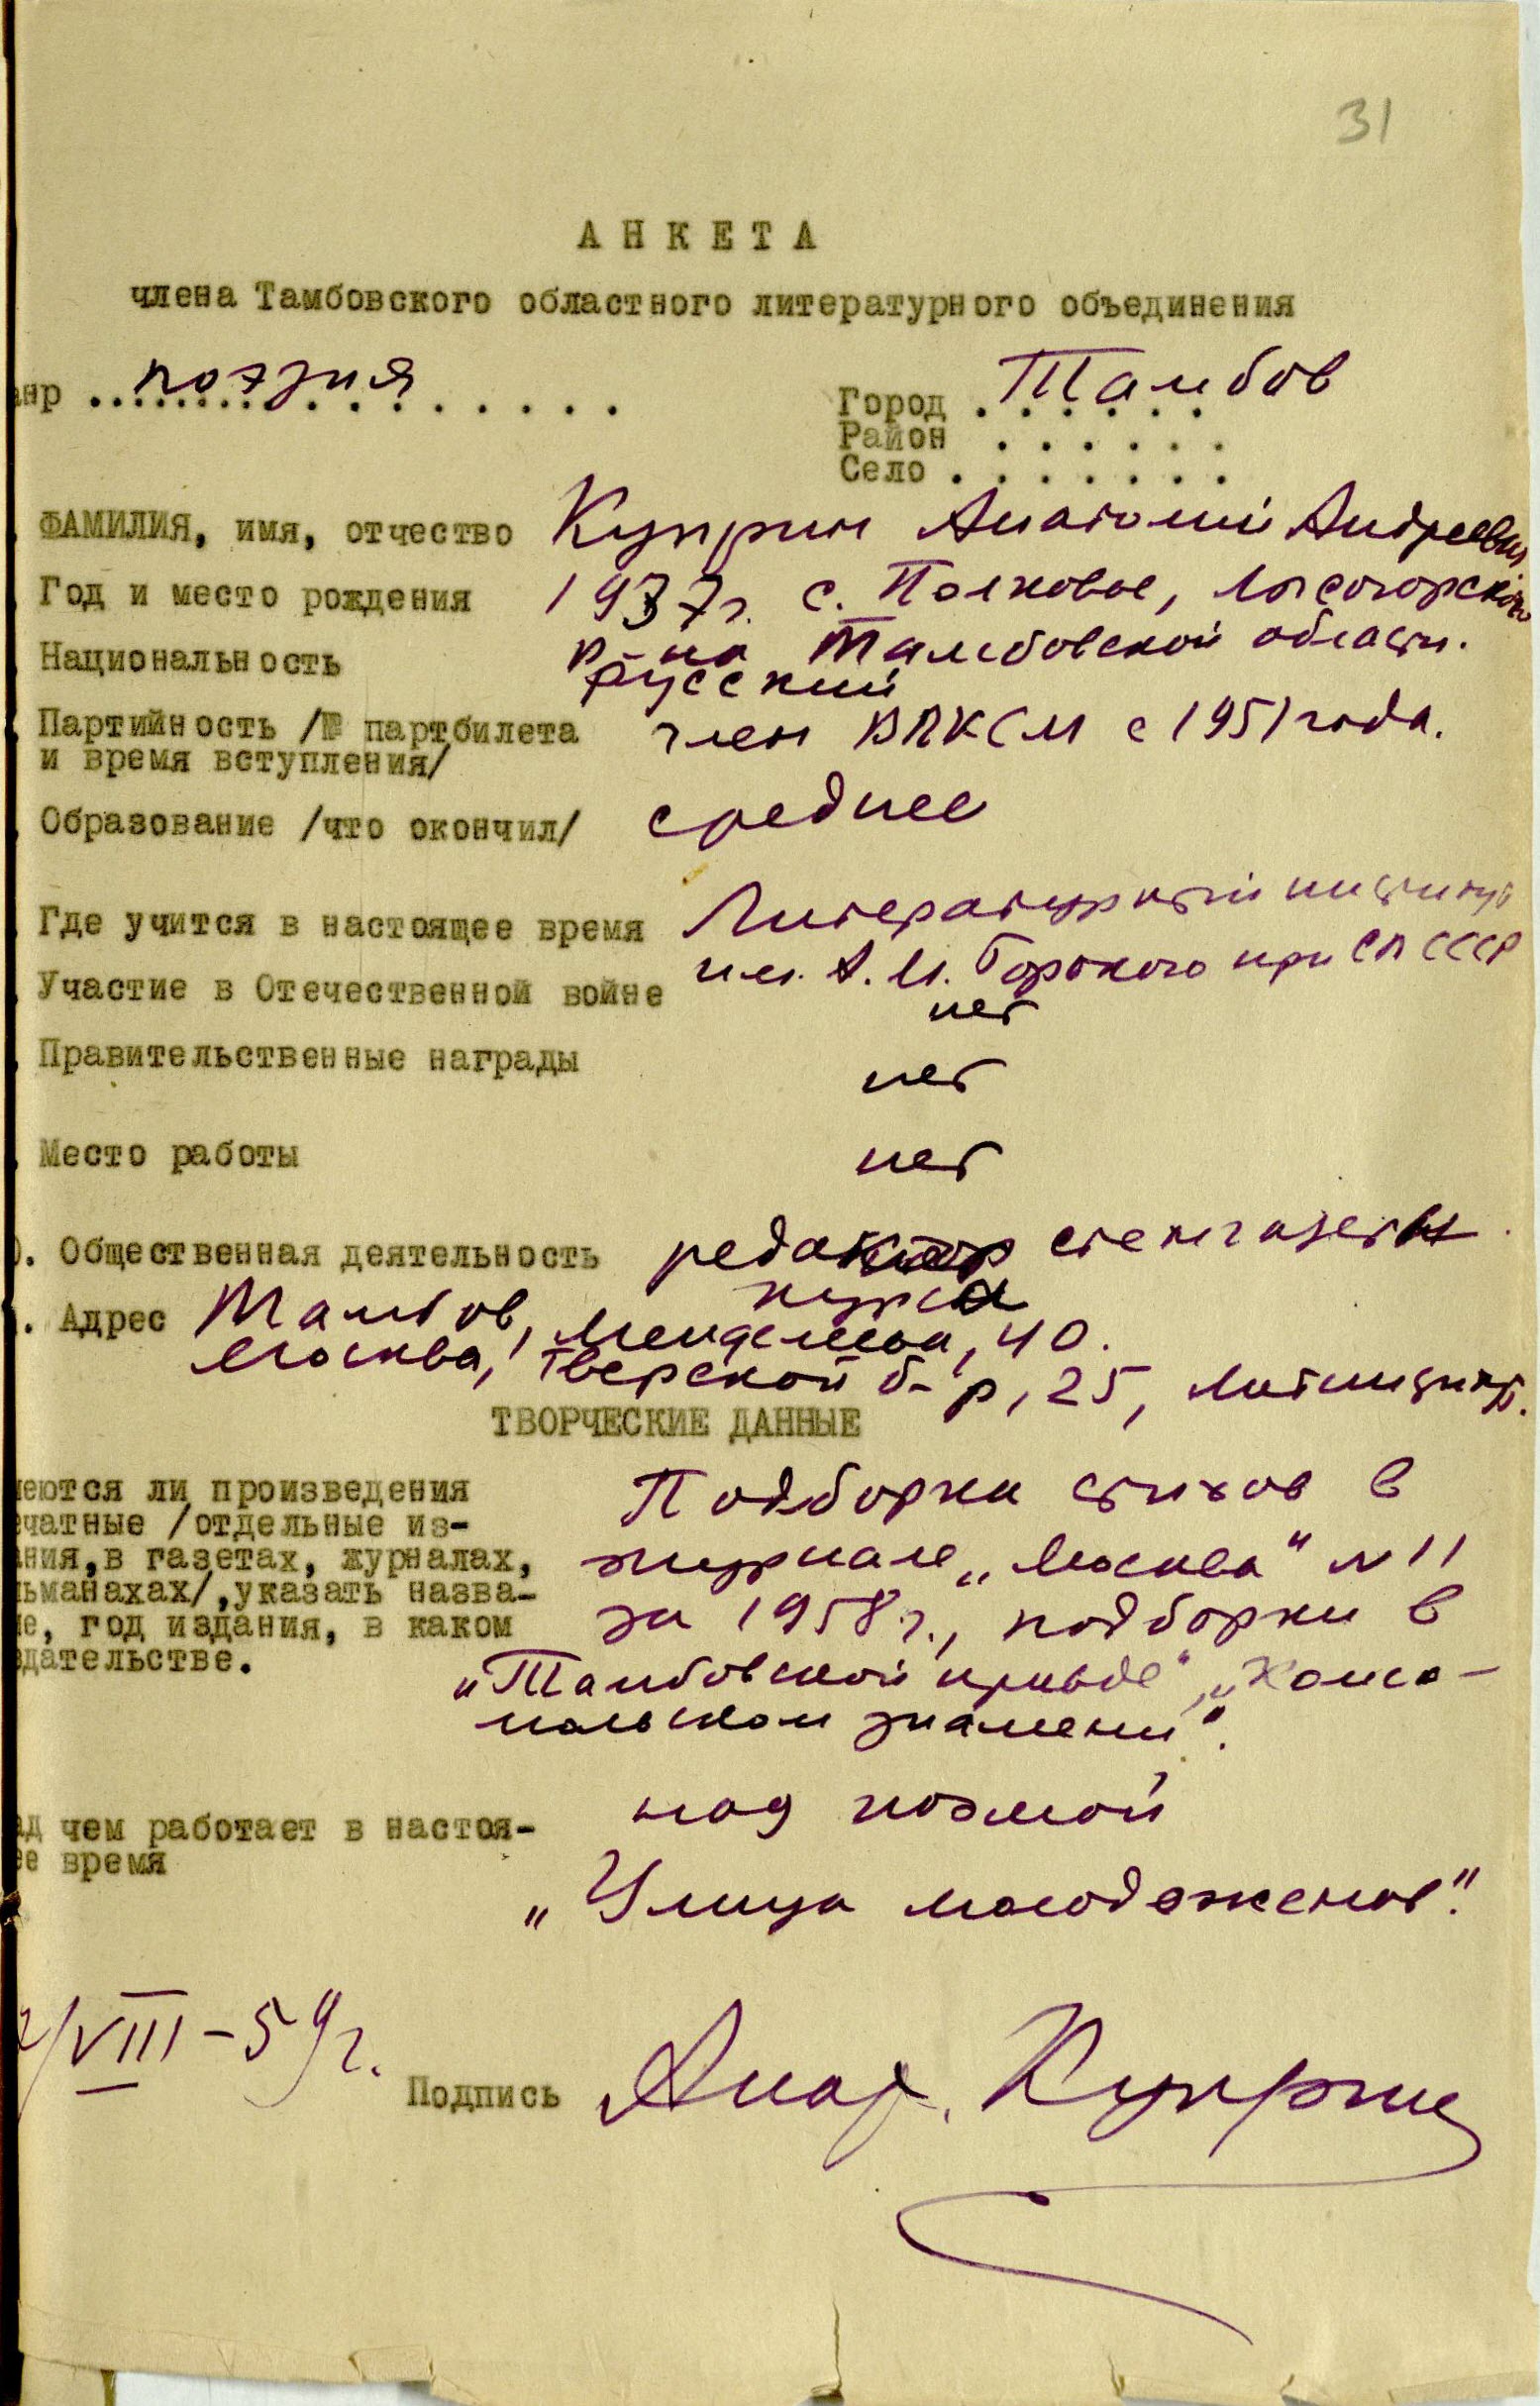 31
АНКЕТА
члена Тамбовского областного литературного объединения
анр ..... поэзия
Город ...... Тамбов
Район ......
Село .......
ФАМИЛИЯ, имя, отчество Куприн Анатолий Андреевич
Год и место рождения 1937г. с. Полковое, Лысогорского
р-на Тамбовской области.
Национальность русский
Партийность /№ партбилета член ВЛКСМ с 1951 года.
и время вступления/
Образование /что окончил/ среднее
Где учится в настоящее время Литературный институт
им. А. М. Горького при СП СССР
Участие в Отечественной войне нет
Правительственные награды нет
Место работы нет
. Общественная деятельность редактор стенгазеты
курса
. Адрес Тамбов, Менделеева, 40.
Москва, Тверской б-р, 25, Литинститут.
ТВОРЧЕСКИЕ ДАННЫЕ
меются ли произведения Подборка стихов в
ечатные /отдельные из-
ания, в газетах, журналах, журнале „Москва" № 11
льманахах/, указать назва-
ие, год издания, в каком за 1958 г., подборки в
здательстве.
„Тамбовской правде", „Комсо-
мольском знамени".
ад чем работает в настоя- над поэмой
ее время
„Улица молодоженов".
/VIII-59г.
Подпись Анат. Куприн